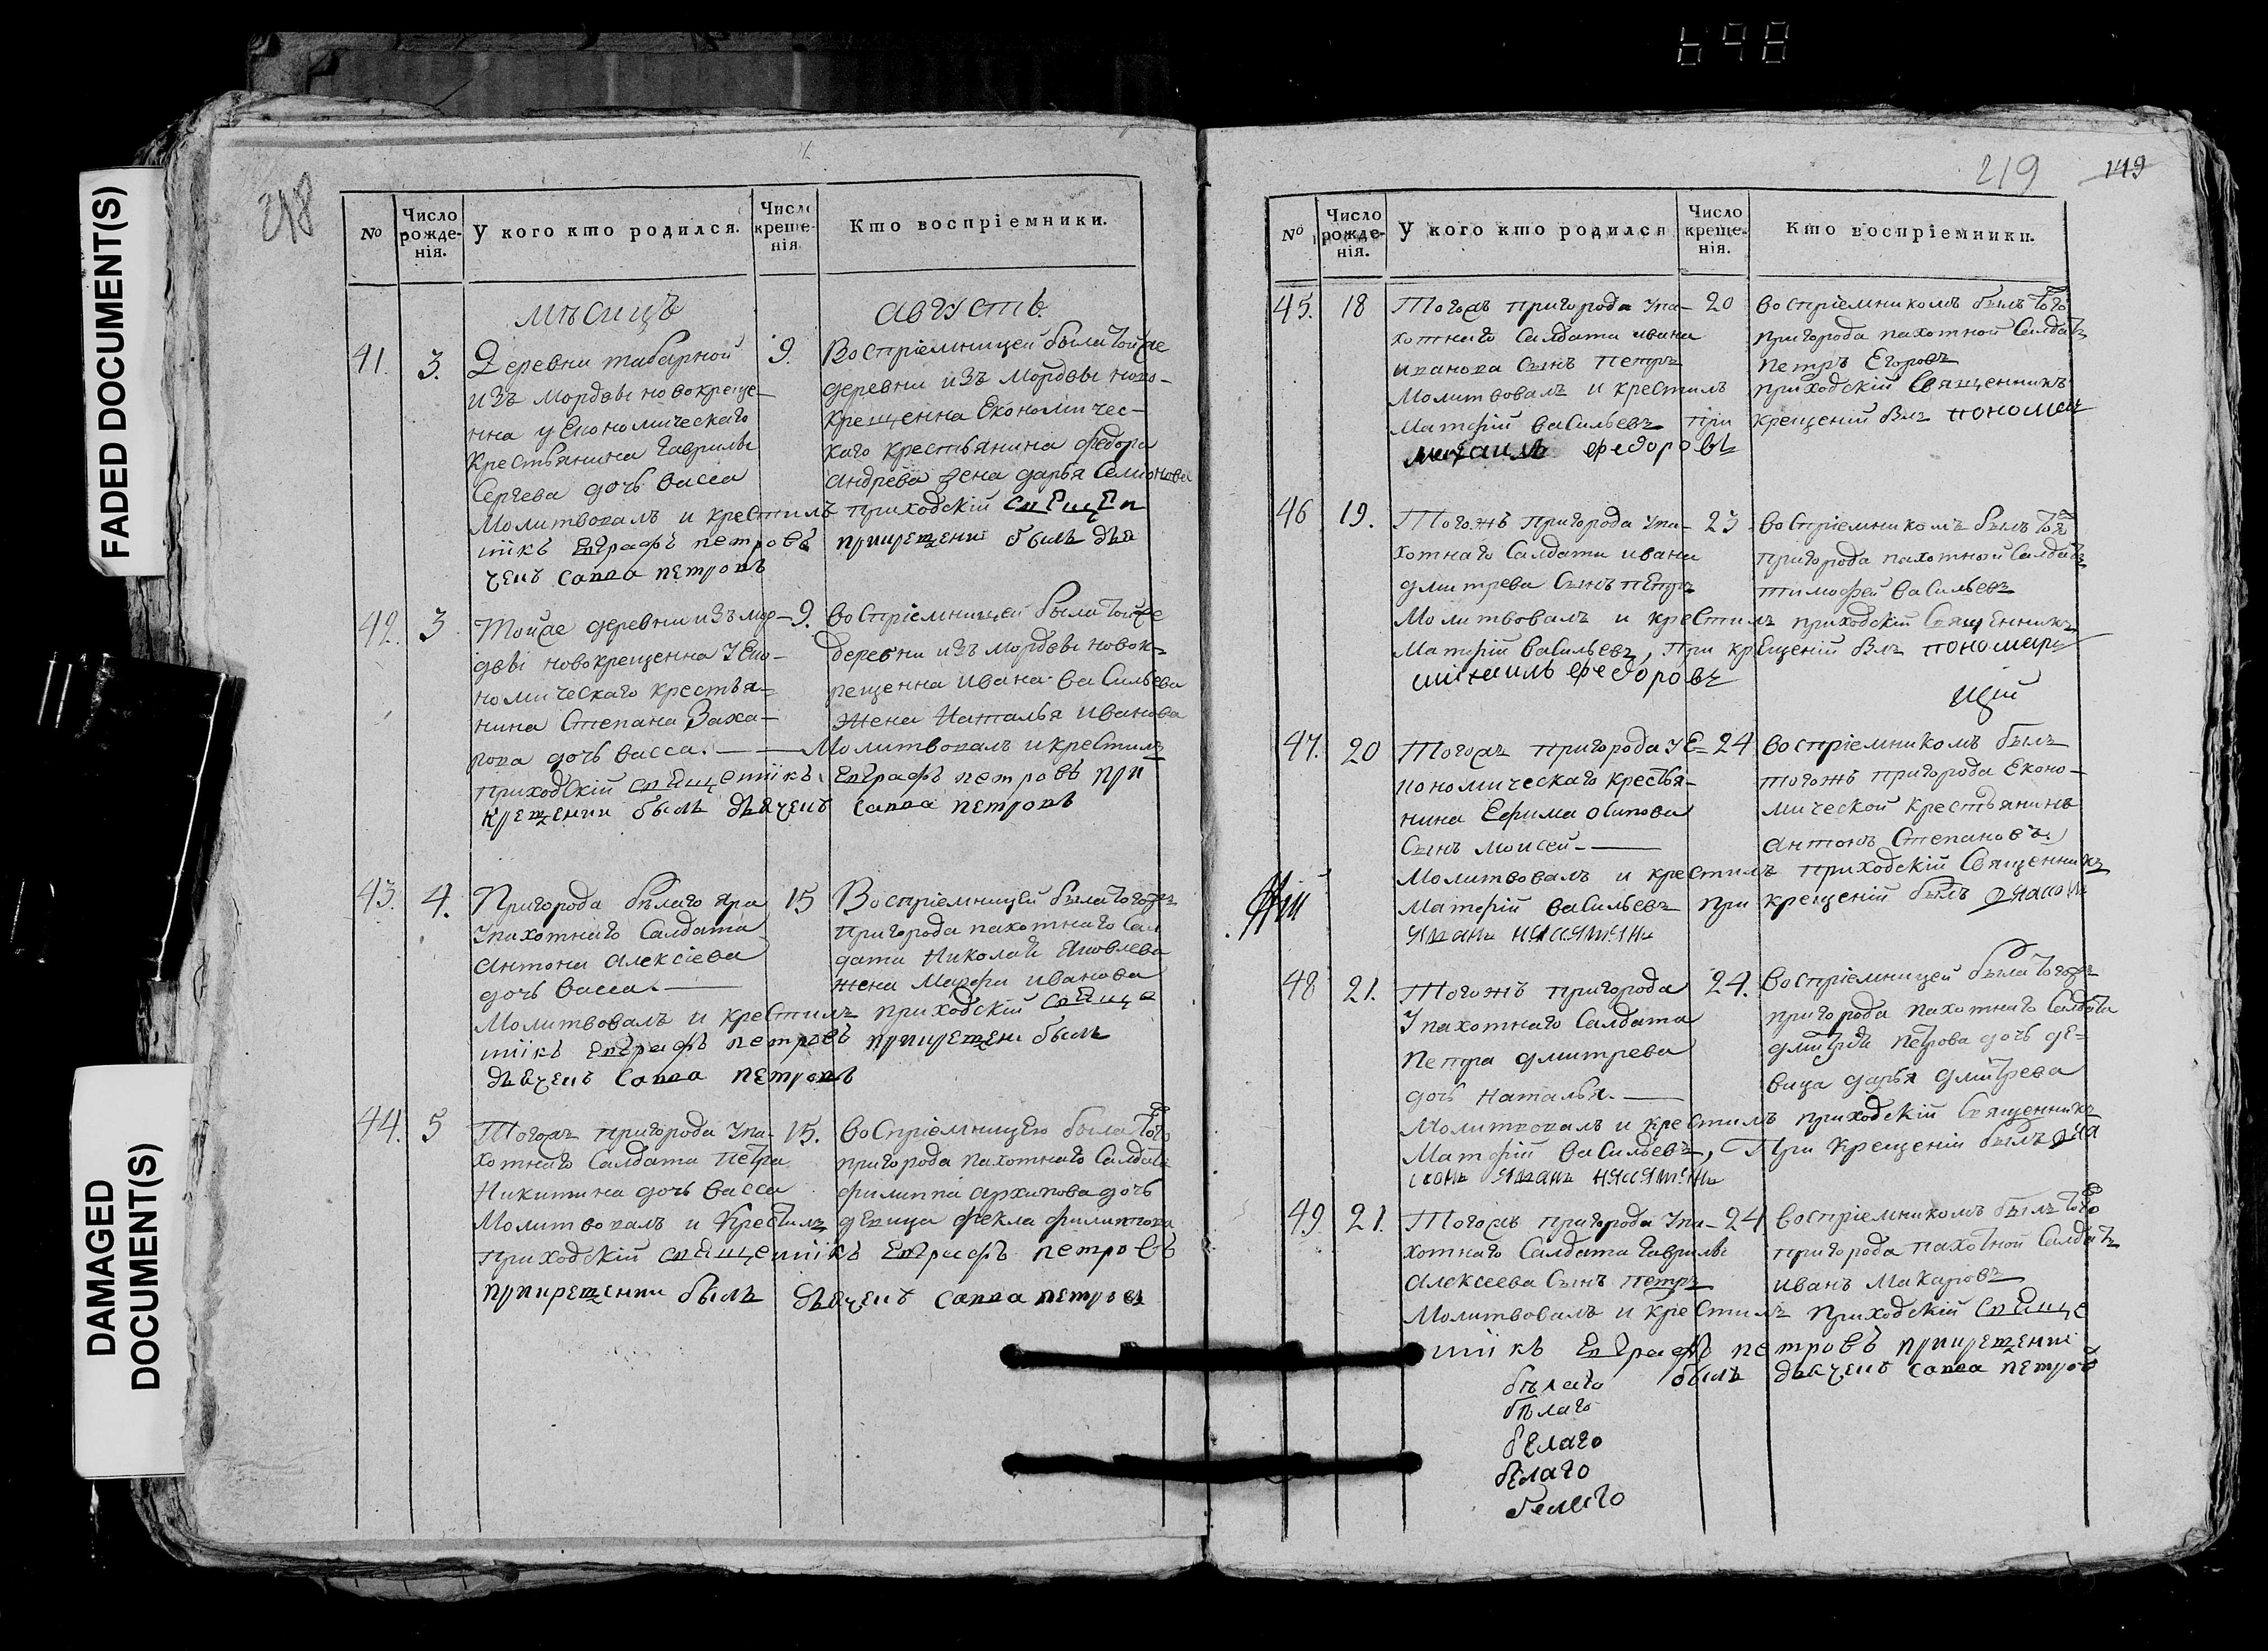 698
FADED DOCUMENT(S)
DAMAGED
DOCUMENT(S)
218
№
Число рожденія.
У кого кто родился.
Число крещенія
Кто воспріемники.
мѣсицъ
августъ
41.
3.
9.
Деревни табарной
изъ мордвы новокреще-
нна у Економическаго
крестьянина гаврилы
Сергѣева дочь васса
Воспріемницей была тойже
деревни изъ мордвы ново-
крещенна Економичес-
каго крестьянина федора
андрѣева жена дарья Семионова
молитвовалъ и крестилъ приходскій
Евграфъ петровъ прикрещени былъ дья
ченъ савва петровъ
42.
3
9.
Тойже деревни изъ мор-
двы новокрещенна у Еко-
номическаго крестья-
нина Степана Заха-
рова дочь васса.
воспріемницей была тойже
деревни изъ мордвы новок-
рещенна ивана васильева
жена Наталья иванова
Молитвовалъ и крестилъ
приходскій Евграфъ петровъ при
крещении былъ дьяченъ савва петровъ
43.
4.
15
Пригорода бѣлаго яра
у пахотнаго Салдата
антона алексіева
дочь васса.
Воспріемницей была тогожъ
пригорода пахотнаго Сал
дата Николай яковлева
жена Марфа иванова
Молитвовалъ и крестилъ приходскій
Евграфъ петровъ прикрещени былъ
дьяченъ савва петровъ
44.
5
15.
Тогожъ пригорода у па-
хотнаго Салдата петра
Никитина дочь васса
воспріемницею была того
пригорода пахотнаго Салдата
филиппа архипова дочь
Молитвовалъ и крестилъ
девица фекла филиппова
приходскій Евграфъ петровъ
прикрещении былъ дьяченъ савва петровъ
219
149
№
Число рожденія.
У кого кто родился
Число крещенія.
Кто воспріемники.
45.
18
20
Тогожъ пригорода у па-
хотнаго Салдата ивана
иванова Сынъ петръ
воспріемникомъ былъ того
пригорода пахотной Салдатъ
петръ Егоровъ
Молитвовалъ и крестилъ приходскій Священникъ
Матфій васильевъ при крещеній былъ пономарь
михаилъ федоровъ
46
19.
23
Тогожъ пригорода у па-
хотнаго Салдата ивана
дмитрева Сынъ петръ
воспріемникомъ былъ того
пригорода пахотной Салдатъ
тимофей васильевъ
Молитвовалъ и крестилъ приходскій Священникъ
Матфій васильевъ, при крещеній былъ пономарь
федоровъ
щій
47.
20
24
Тогожъ пригорода у Е-
кономическаго крестья-
нина Ефима осипова
Сынъ моисей.
воспріемникомъ былъ
тогожъ пригорода Еконо-
мической крестьянинъ
антонъ Степановъ.
Молитвовалъ и крестилъ приходскій Священникъ
Матфій васильевъ при крещеній былъ
48
21.
24.
Тогожъ пригорода
У пахотнаго Салдата
петра дмитрева
дочь наталья.
воспріемницей была тогожъ
пригорода пахотнаго Салдата
дмитрія петрова дочь де-
вица дарья дмитрева
Молитвовалъ и крестилъ приходскій Священникъ
Матфій васильевъ, При крещеніи былъ
49
21.
24
Тогожъ пригорода у па-
хотнаго Салдата гаврилы
алексеева Сынъ петръ
воспріемникомъ былъ того
пригорода пахотной Салдатъ
иванъ Макаровъ
Молитвовалъ и крестилъ приходскій
Евграфъ петровъ прикрещении
былъ дьяченъ савва петровъ
бѣлаго
бѣлаго
белаго
белаго
белаго